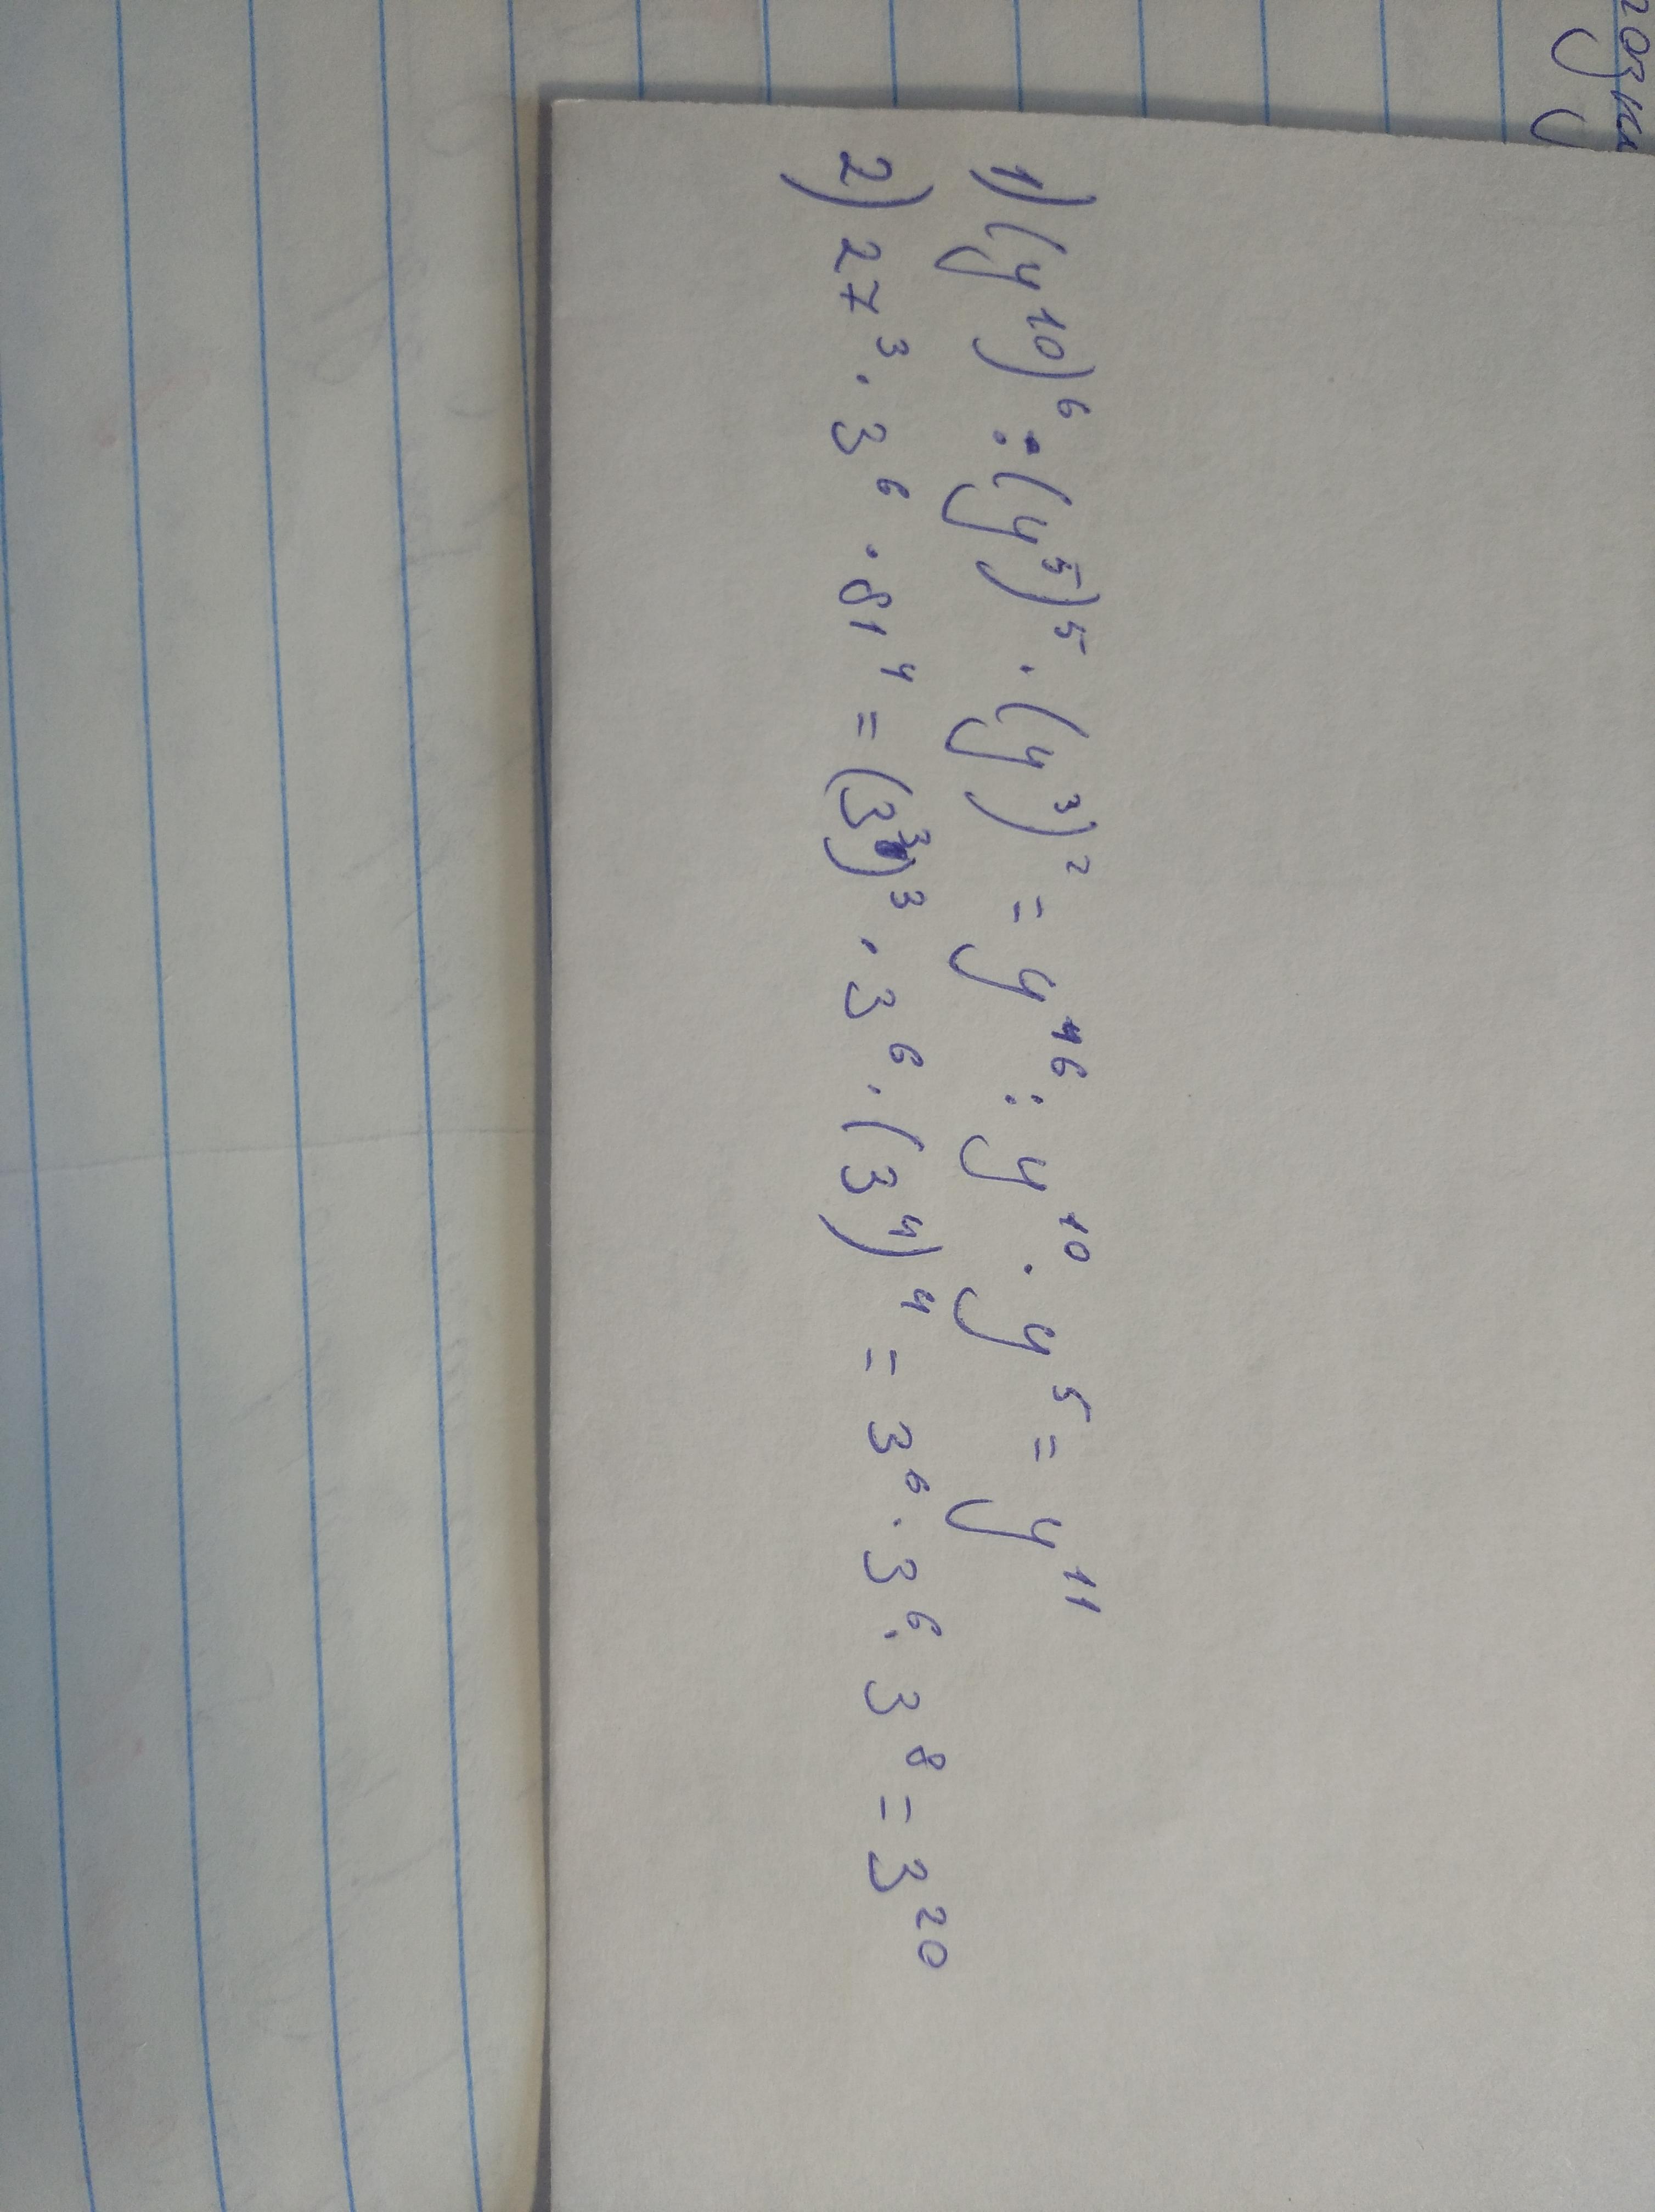 1) (y¹⁰)⁶ : (y⁵)⁵ · (y³)² = y¹⁶ : y¹⁰ · y⁵ = y¹¹
2) 27³ · 3⁶ · 81⁴ = (3³)³ · 3⁶ · (3⁴)⁴ = 3⁶ · 3⁶ · 3⁸ = 3²⁰